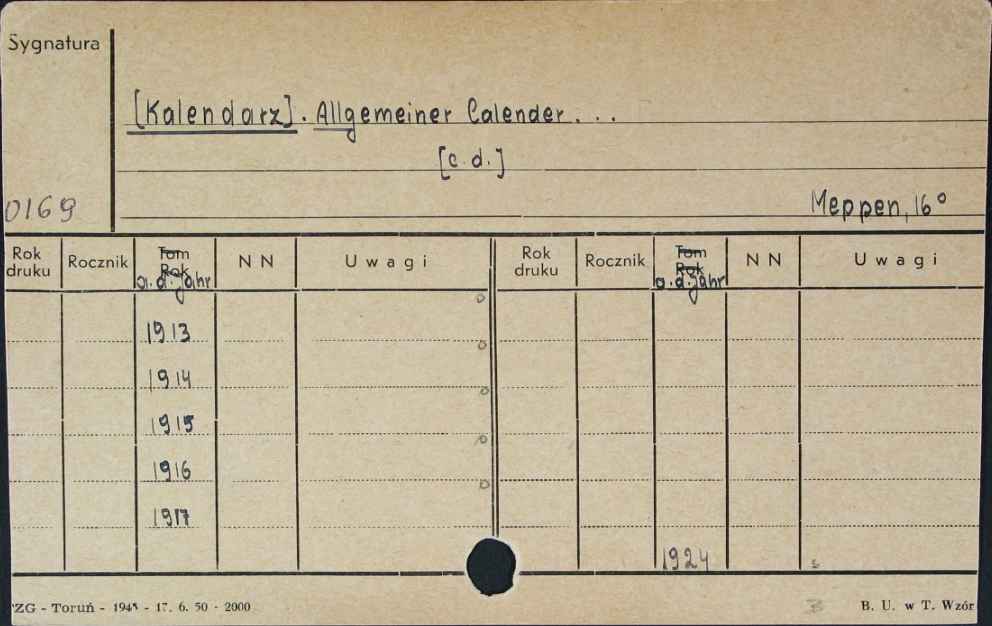 Sygnatura
[Kalendarz]. Allgemeiner Calender...
[c.d.]
0169
Meppen, 16°
Rok druku Rocznik Tom Rok a.d.jahr NN Uwagi Rok druku Rocznik Tom Rok a.d.jahr NN Uwagi
1913
1914
1915
1916
1917
1924
ZG - Toruń - 194 - 17. 6. 50 - 2000 B. U. w T. Wzór